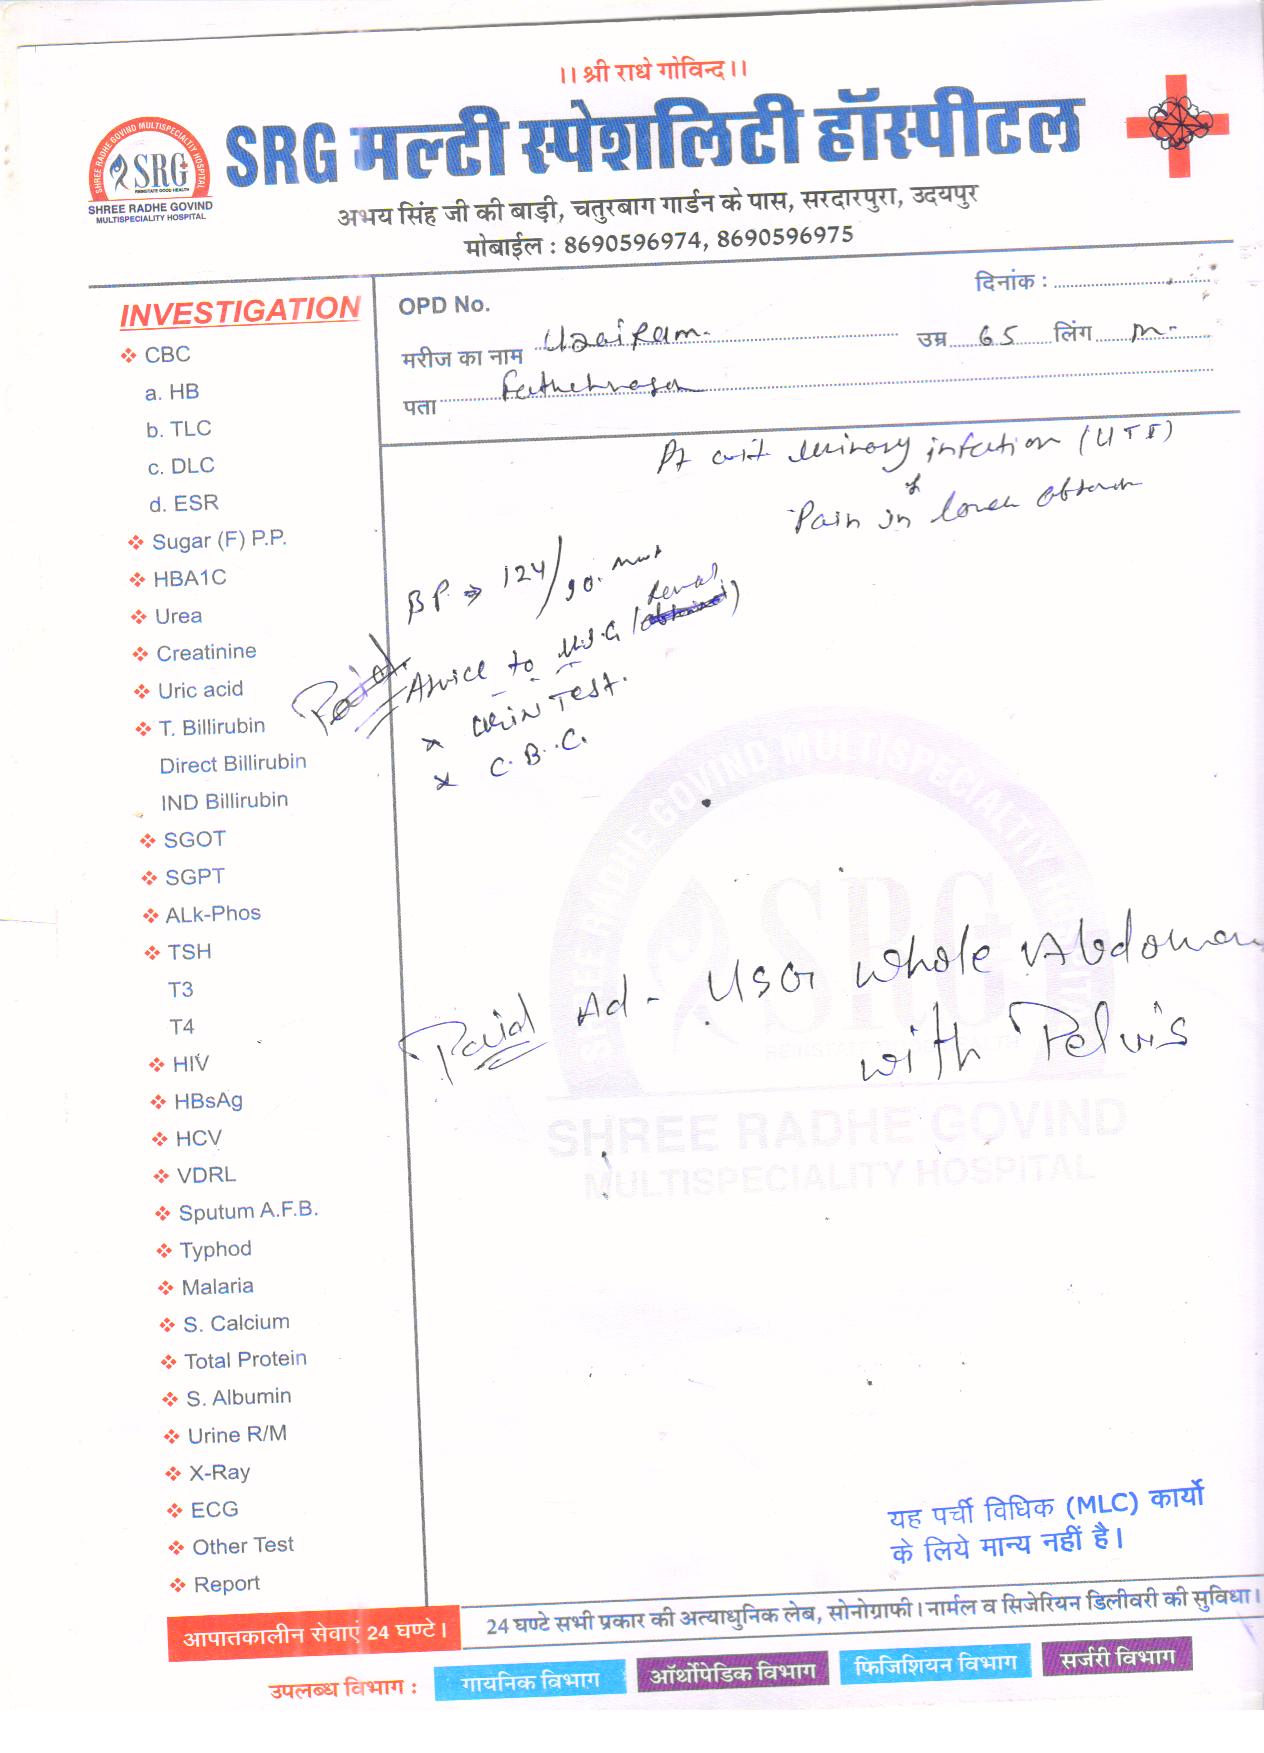 ।। श्री राधे गोविन्द।।
SHREE RADHE GOVIND MULTISPECIALTIY HOSPITAL
SRG
REINSTATE GOOD HEALTH
SHREE RADHE GOVIND
MULTISPECIALITY HOSPITAL
SRG मल्टी स्पेशलिटी हॉस्पीटल
अभय सिंह जी की बाड़ी, चतुरबाग गार्डन के पास, सरदारपुरा, उदयपुर
मोबाईल : 8690596974, 8690596975
दिनांक :
OPD No.
मरीज का नाम उम्र 65 लिंग m.
पता
INVESTIGATION
CBC
a. HB
b. TLC
c. DLC
d. ESR
Sugar (F) P.P.
HBA1C
Urea
Creatinine
Uric acid
T. Billirubin
Direct Billirubin
IND Billirubin
SGOT
SGPT
ALk-Phos
TSH
T3
T4
HIV
HBsAg
HCV
VDRL
Sputum A.F.B.
Typhod
Malaria
S. Calcium
Total Protein
S. Albumin
Urine R/M
X-Ray
ECG
Other Test
Report
Pt infection (UTI)
Pain in lower
BP → 124/90
Paid Advice to U.S.G (Renal)
Test.
C.B.C.
Paid Ad - USG Whole Abdomen
with Pelvis
SHREE RADHE GOVIND MULTISPECIALTIY HOSPITAL
SRG
SHREE RADHE GOVIND
MULTISPECIALITY HOSPITAL
यह पर्ची विधिक (MLC) कार्यो
के लिये मान्य नहीं है।
आपातकालीन सेवाएं 24 घण्टे।
24 घण्टे सभी प्रकार की अत्याधुनिक लेब, सोनोग्राफी। नार्मल व सिजेरियन डिलीवरी की सुविधा।
उपलब्ध विभाग :
गायनिक विभाग
ऑर्थोपेडिक विभाग
फिजिशियन विभाग
सर्जरी विभाग